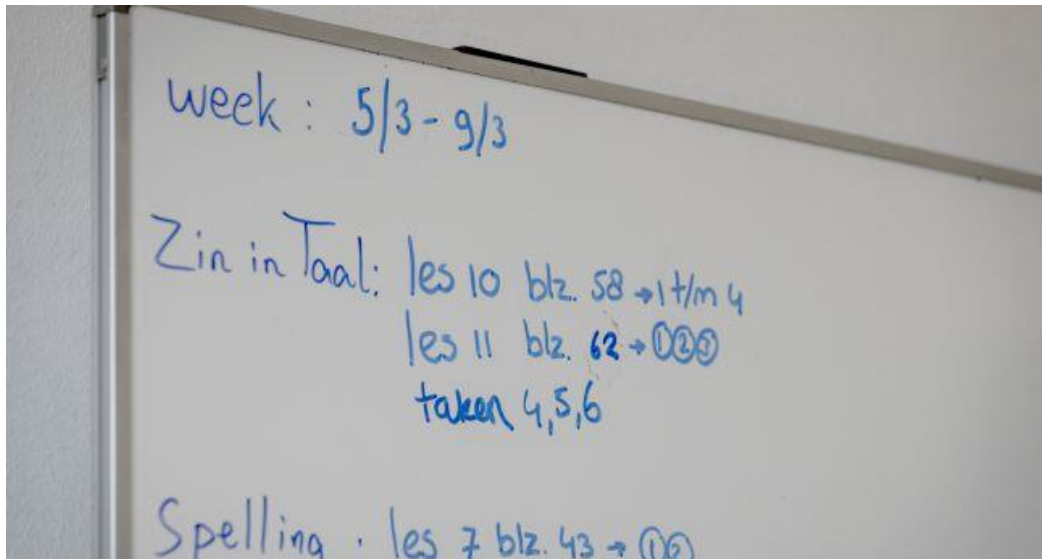 week : 5/3 - 9/3
Zin in Taal: les 10 blz. 58 → 1 t/m 4
les 11 blz. 62 → ①②③
taken 4,5,6
Spelling : les 7 blz. 43 → ①②